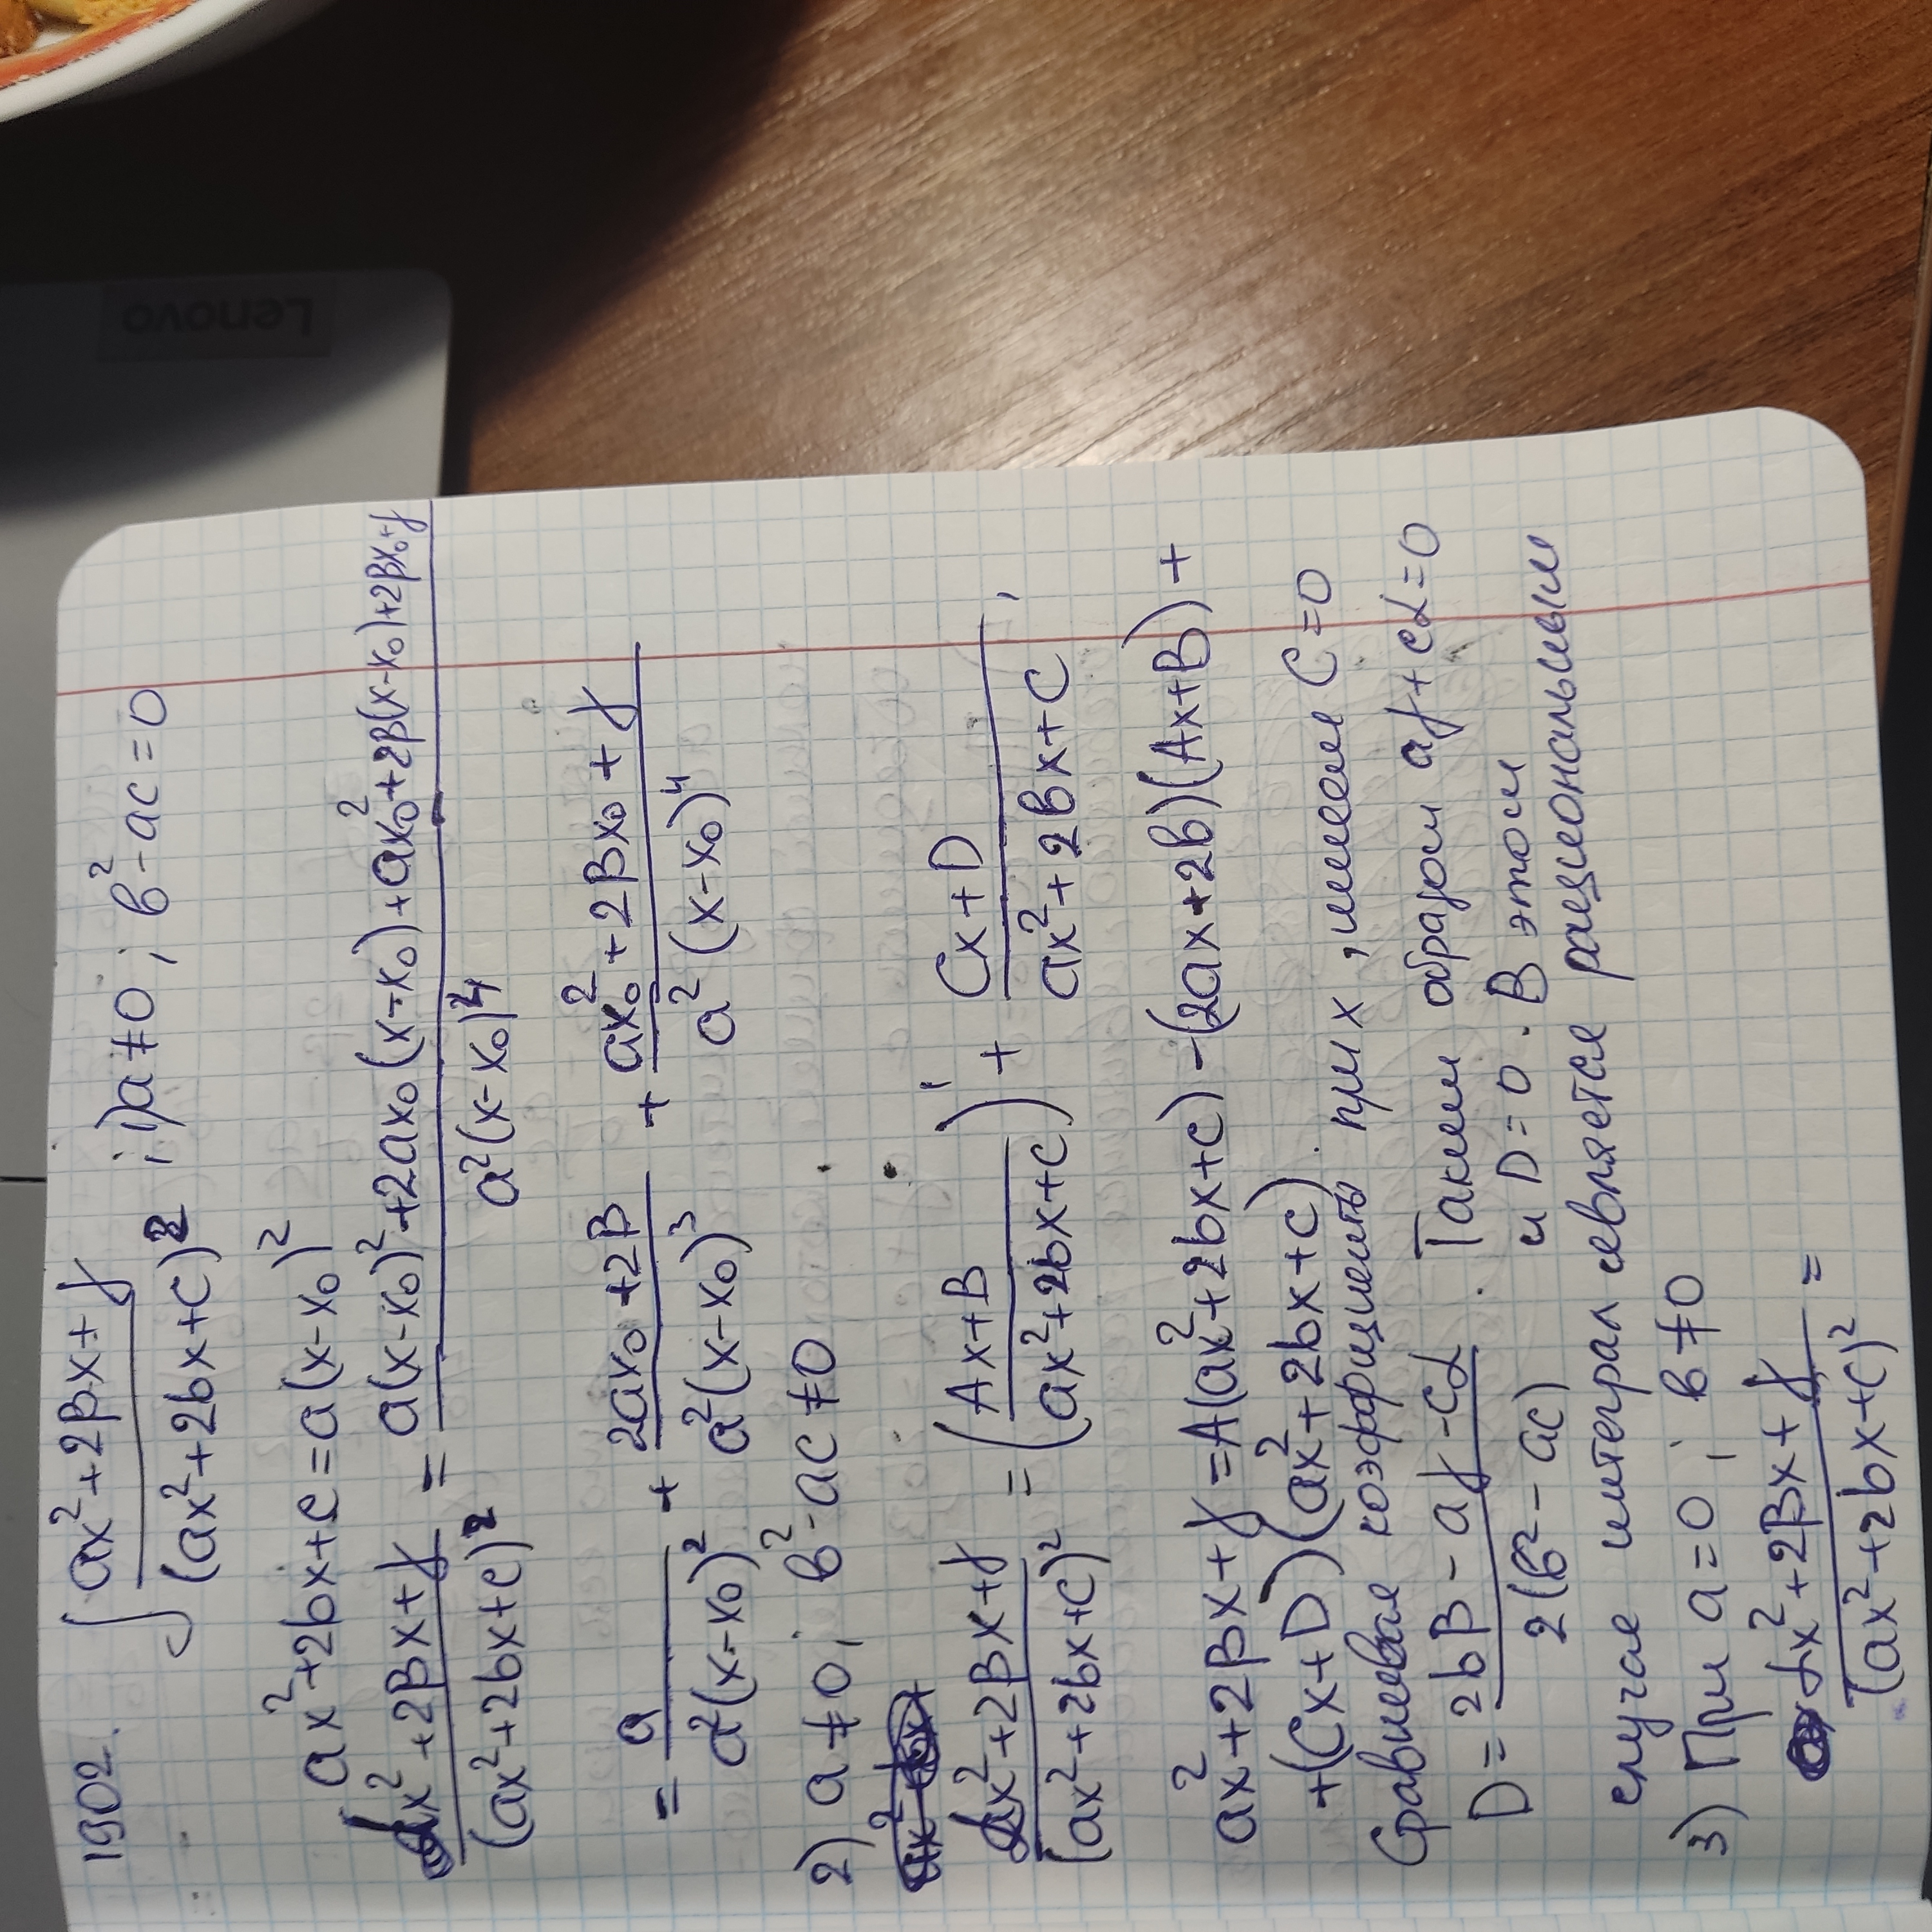 1902. ∫ (ax²+2βx+γ)/(ax²+2bx+c)² ; 1) a≠0 ; b²-ac=0
ax²+2bx+c=a(x-x₀)²
(αx²+2βx+γ)/(ax²+2bx+c)² = (a(x-x₀)²+2ax₀(x-x₀)+ax₀²+2β(x-x₀)+2βx₀+γ)/(a²(x-x₀)⁴)
= a/(a²(x-x₀)²) + (2ax₀+2β)/(a²(x-x₀)³) + (ax₀²+2βx₀+γ)/(a²(x-x₀)⁴)
2) a≠0; b²-ac≠0
(αx²+2βx+γ)/(ax²+2bx+c)² = ((Ax+B)/(ax²+2bx+c))' + (Cx+D)/(ax²+2bx+c),
ax²+2βx+γ=A(ax²+2bx+c)-(2ax+2b)(Ax+B)+
+(Cx+D)(ax²+2bx+c).
Сравнивая коэффициенты при x, имеем C=0
D=(2bβ-aγ-cα)/(2(b²-ac)). Таким образом aγ+cα=0
и D=0. В этом
случае интеграл является рациональным
3) При a=0; b≠0
(αx²+2βx+γ)/(ax²+2bx+c)² =
Lenovo